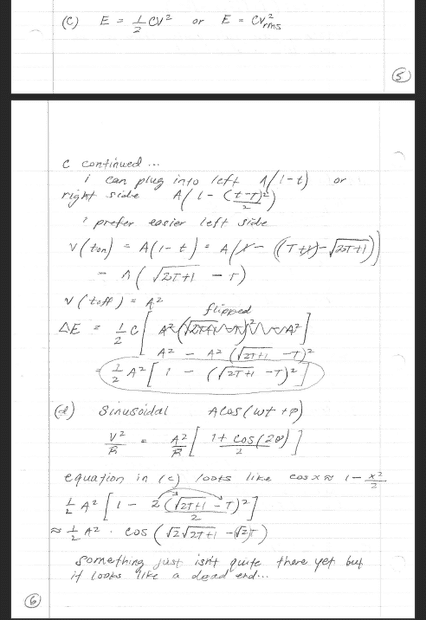 (c) E = 1/2 CV² or E = CV²rms
⑤
c continued ...
i can plug into left A(1-t) or
right side A(1 - (t-T)²/2)
i prefer easier left side
V(ton) = A(1-t) = A(1 - ((T+1) - √2T+1))
= A(√2T+1 - T)
V(toff) = A²
flipped
ΔE = 1/2 C[ A²(√2T+1 - T)² - A² ]
A² - A²(√2T+1 - T)²
= 1/2 A²[ 1 - (√2T+1 - T)² ]
(d) Sinusoidal Acos(ωt + φ)
V²/R = A²/R [ 1 + cos(2φ) / 2 ]
equation in (c) looks like cos x ≈ 1 - x²/2
1/2 A² [ 1 - 2(√2T+1 - T)²/2 ]
≈ 1/2 A² · cos(√2√2T+1 - √2T)
something just isn't quite there yet but
it looks like a dead end...
⑥